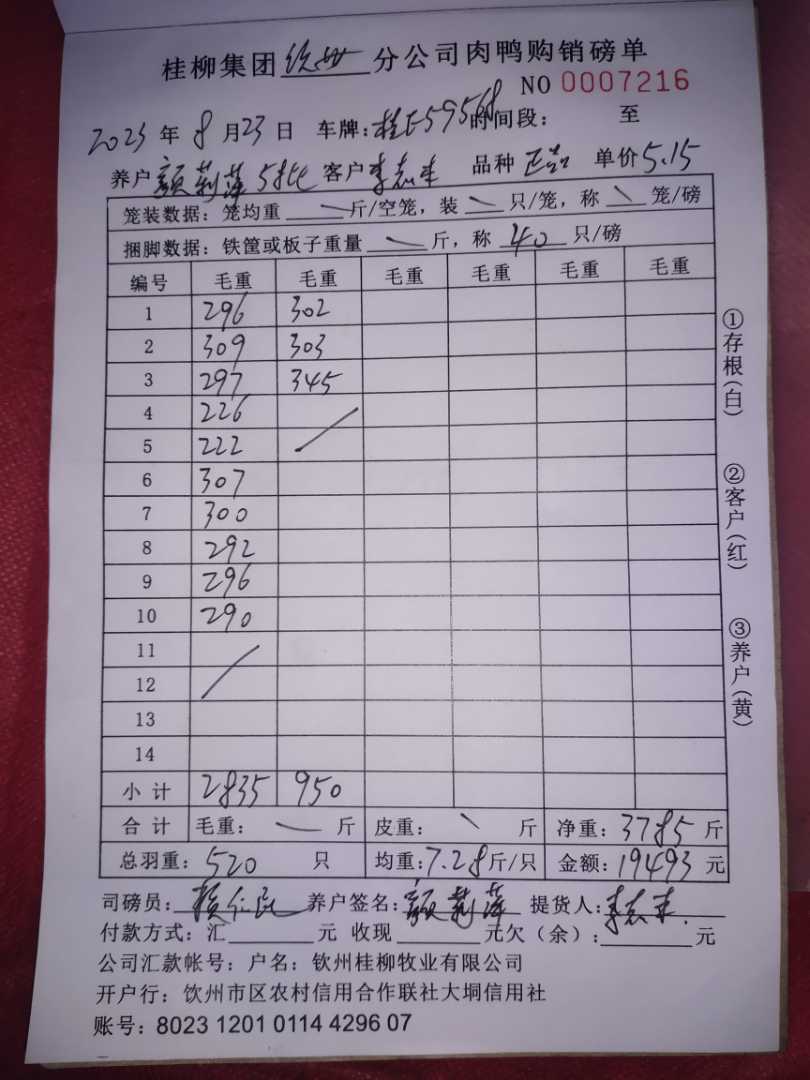 桂柳集团 钦州 分公司肉鸭购销磅单
NO 0007216
2023 年 8 月 23 日 车牌：桂E59568 时间段： 至
养户 颜莉萍 5批 客户 李志丰 品种 正品 单价 5.15
笼装数据：笼均重 斤/空笼，装 只/笼，称 笼/磅
捆脚数据：铁筐或板子重量 斤，称 40 只/磅
编号 毛重 毛重 毛重 毛重 毛重 毛重
1 296 302
2 309 303
3 297 345
4 226
5 222
6 307
7 300
8 292
9 296
10 290
11
12
13
14
小计 2835 950
合计 毛重： 斤 皮重： 斤 净重：3785 斤
总羽重：520 只 均重：7.28 斤/只 金额：19493 元
司磅员： 养户签名：颜莉萍 提货人：李志丰
付款方式：汇 元 收现 元欠（余）： 元
公司汇款帐号：户名：钦州桂柳牧业有限公司
开户行：饮州市区农村信用合作联社大垌信用社
账号：8023 1201 0114 4296 07
①存根（白）
②客户（红）
③养户（黄）